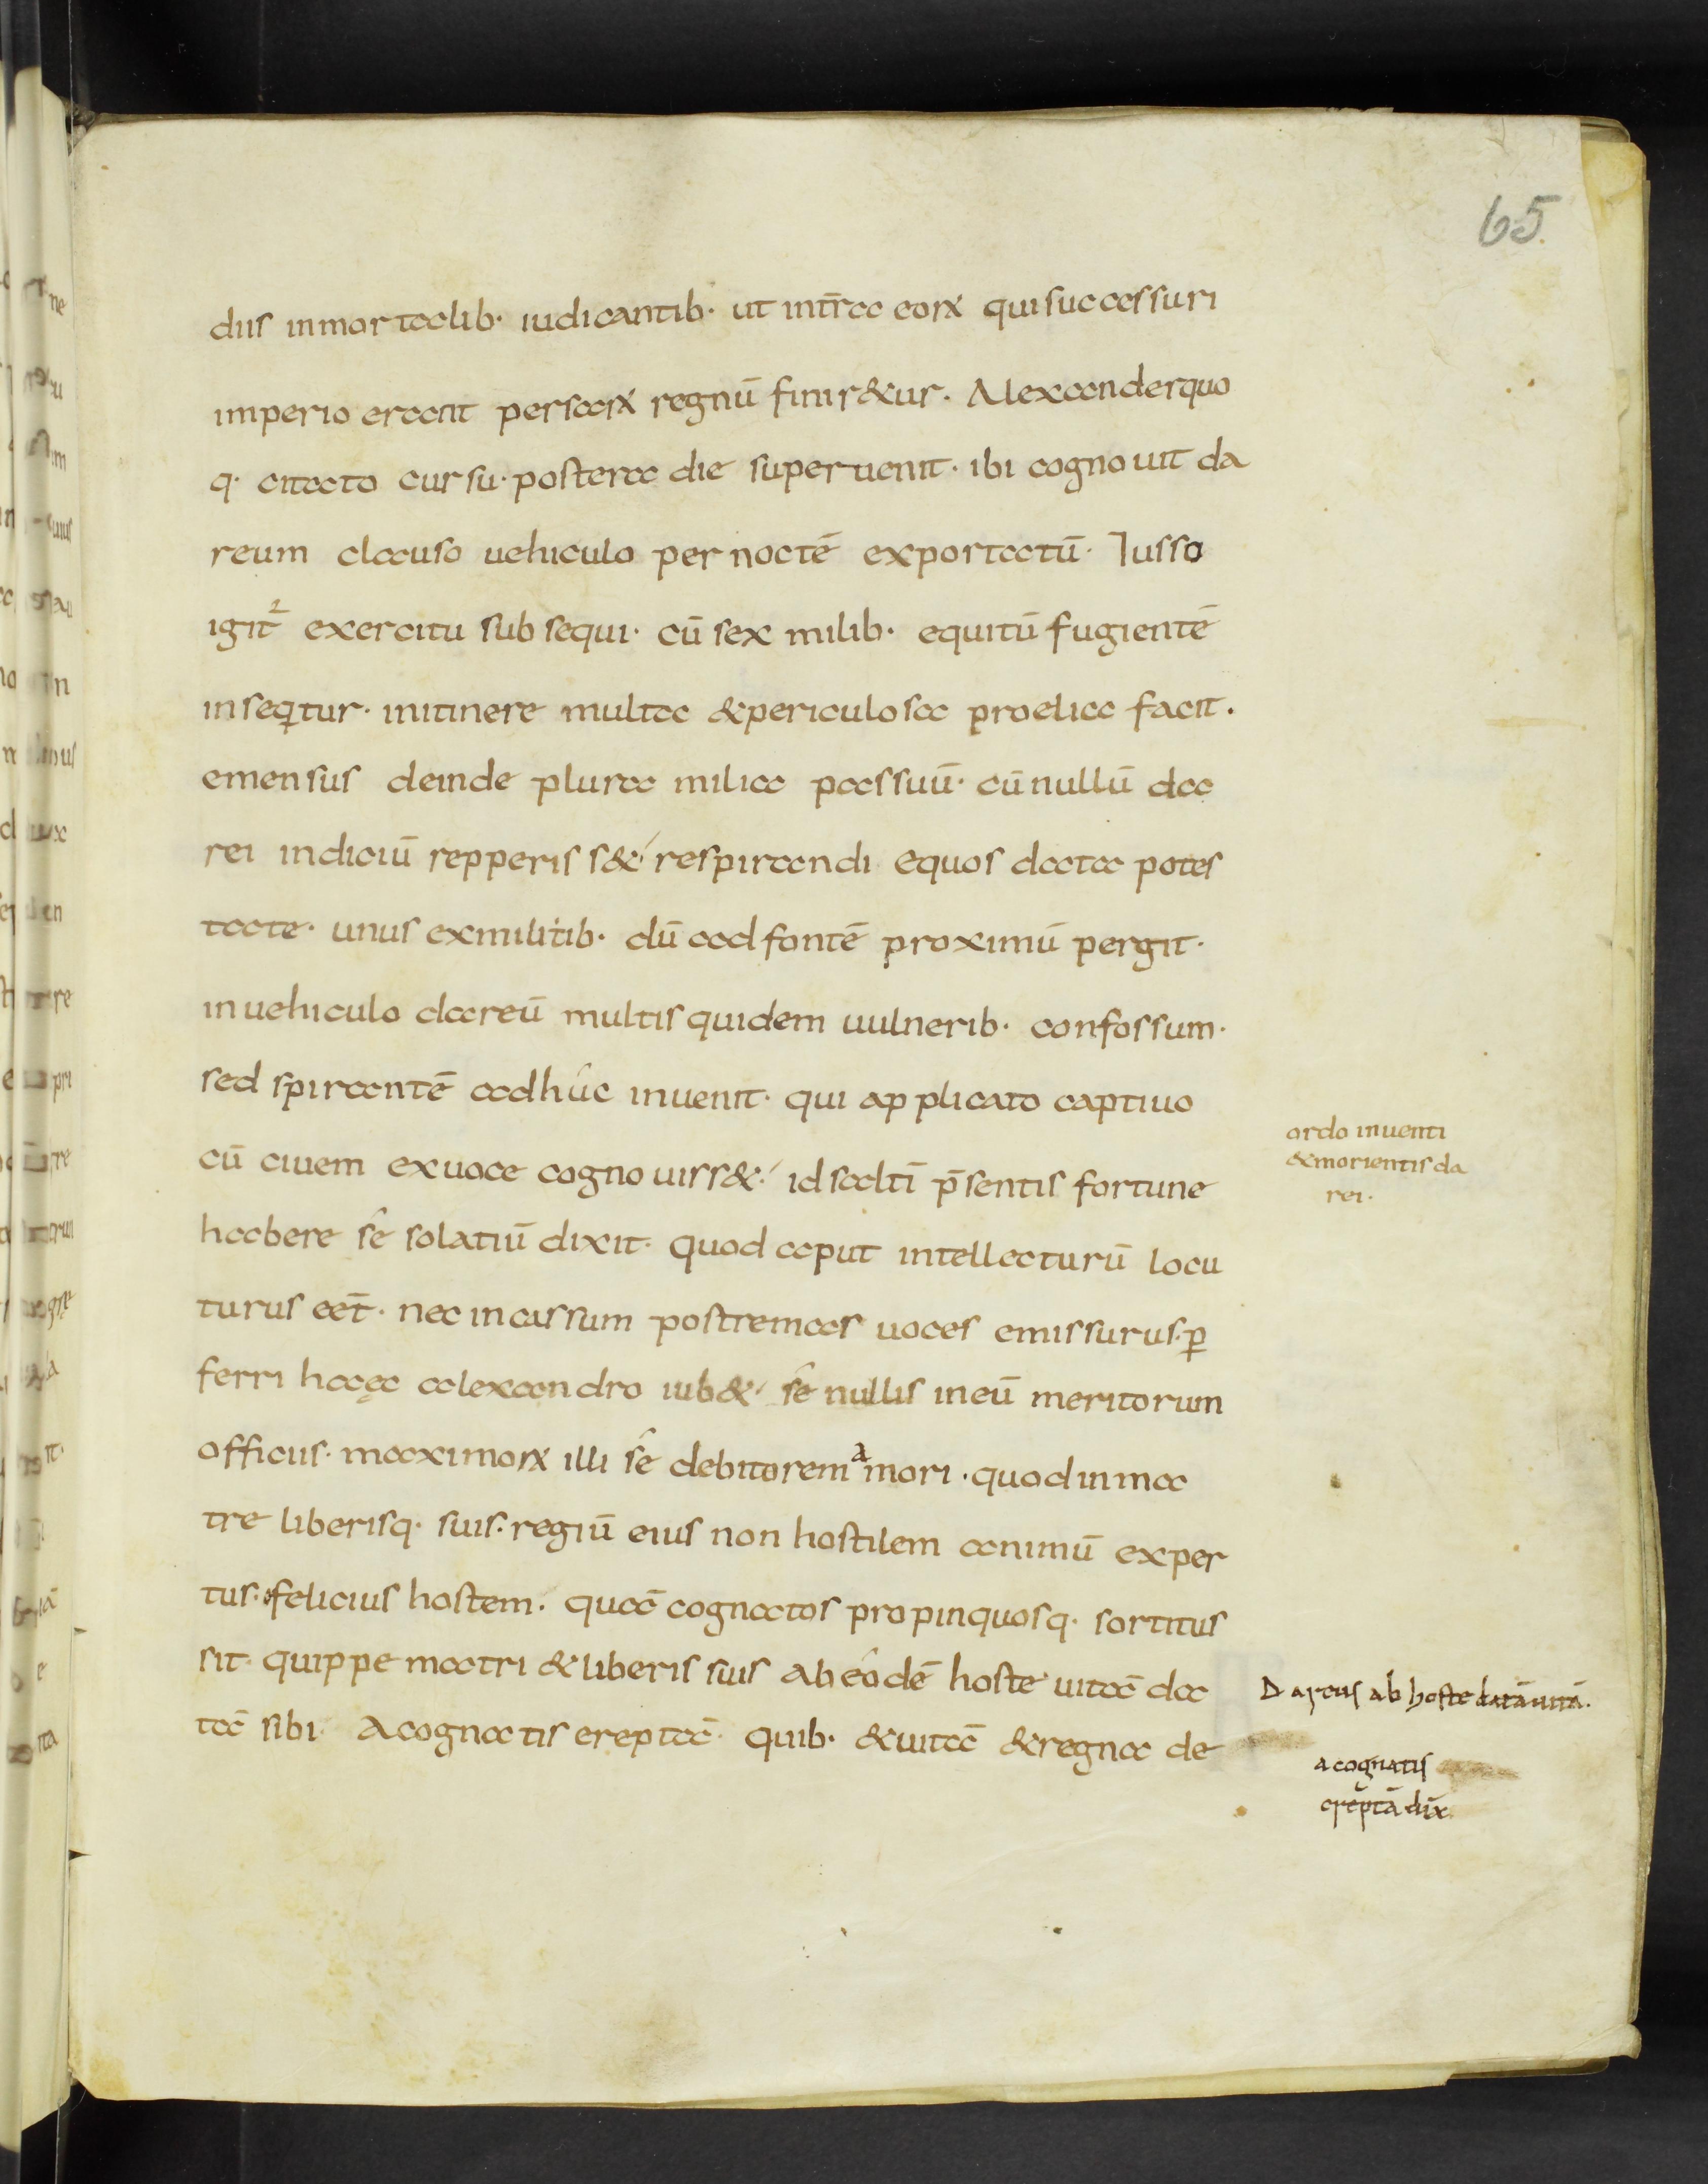 65
diis inmortalib· iudicantib· ut intr̄a eoꝝ qui successuri
imperio erant persaꝝ regnū finir&ur. Alexander quo
q· citato cursu· postera die superuenit· ibi cognouit da
reum clauso uehiculo per noctē exportatū· Iusso
igit² exercitu subsequi· cū sex milib· equitū fugientē
inseqtur· initinere multa & periculosa proelia facit.
emensus deinde plura milia passuū· cū nullū da
rei indiciū repperiss&· respirandi equos data potes
tate· unus exmilitib· dū ad fontē proximū pergit·
inuehiculo dareū multis quidem uulnerib· confossum·
sed spirantē adhuc inuenit· qui applicato captiuo
cū ciuem exuoce cognouiss&· id saltī p̄sentis fortune
habere sé solatiū dixit· quod aput intellecturū locu
turus eēt· nec incassum postremas uoces emissurus· ꝑ
ferri hæc alexandro iub&· sé nullis ineū meritorum
officiis· maximoꝝ illi sé debitorem amori· quod inma
tre liberisq· suis· regiū eius non hostilem animū exper
tus· felicius hostem· quā cognatos propinquosq· sortitus
sit· quippe matri & liberis suis ab eódē hoste uitā da
tā sibi· A cognatis ereptā· quib· & uitā & regna de
ordo inuenti
& morientis da
rei·
Dareus ab hoste datā uitā.
a cognatis
ereptā dix̄